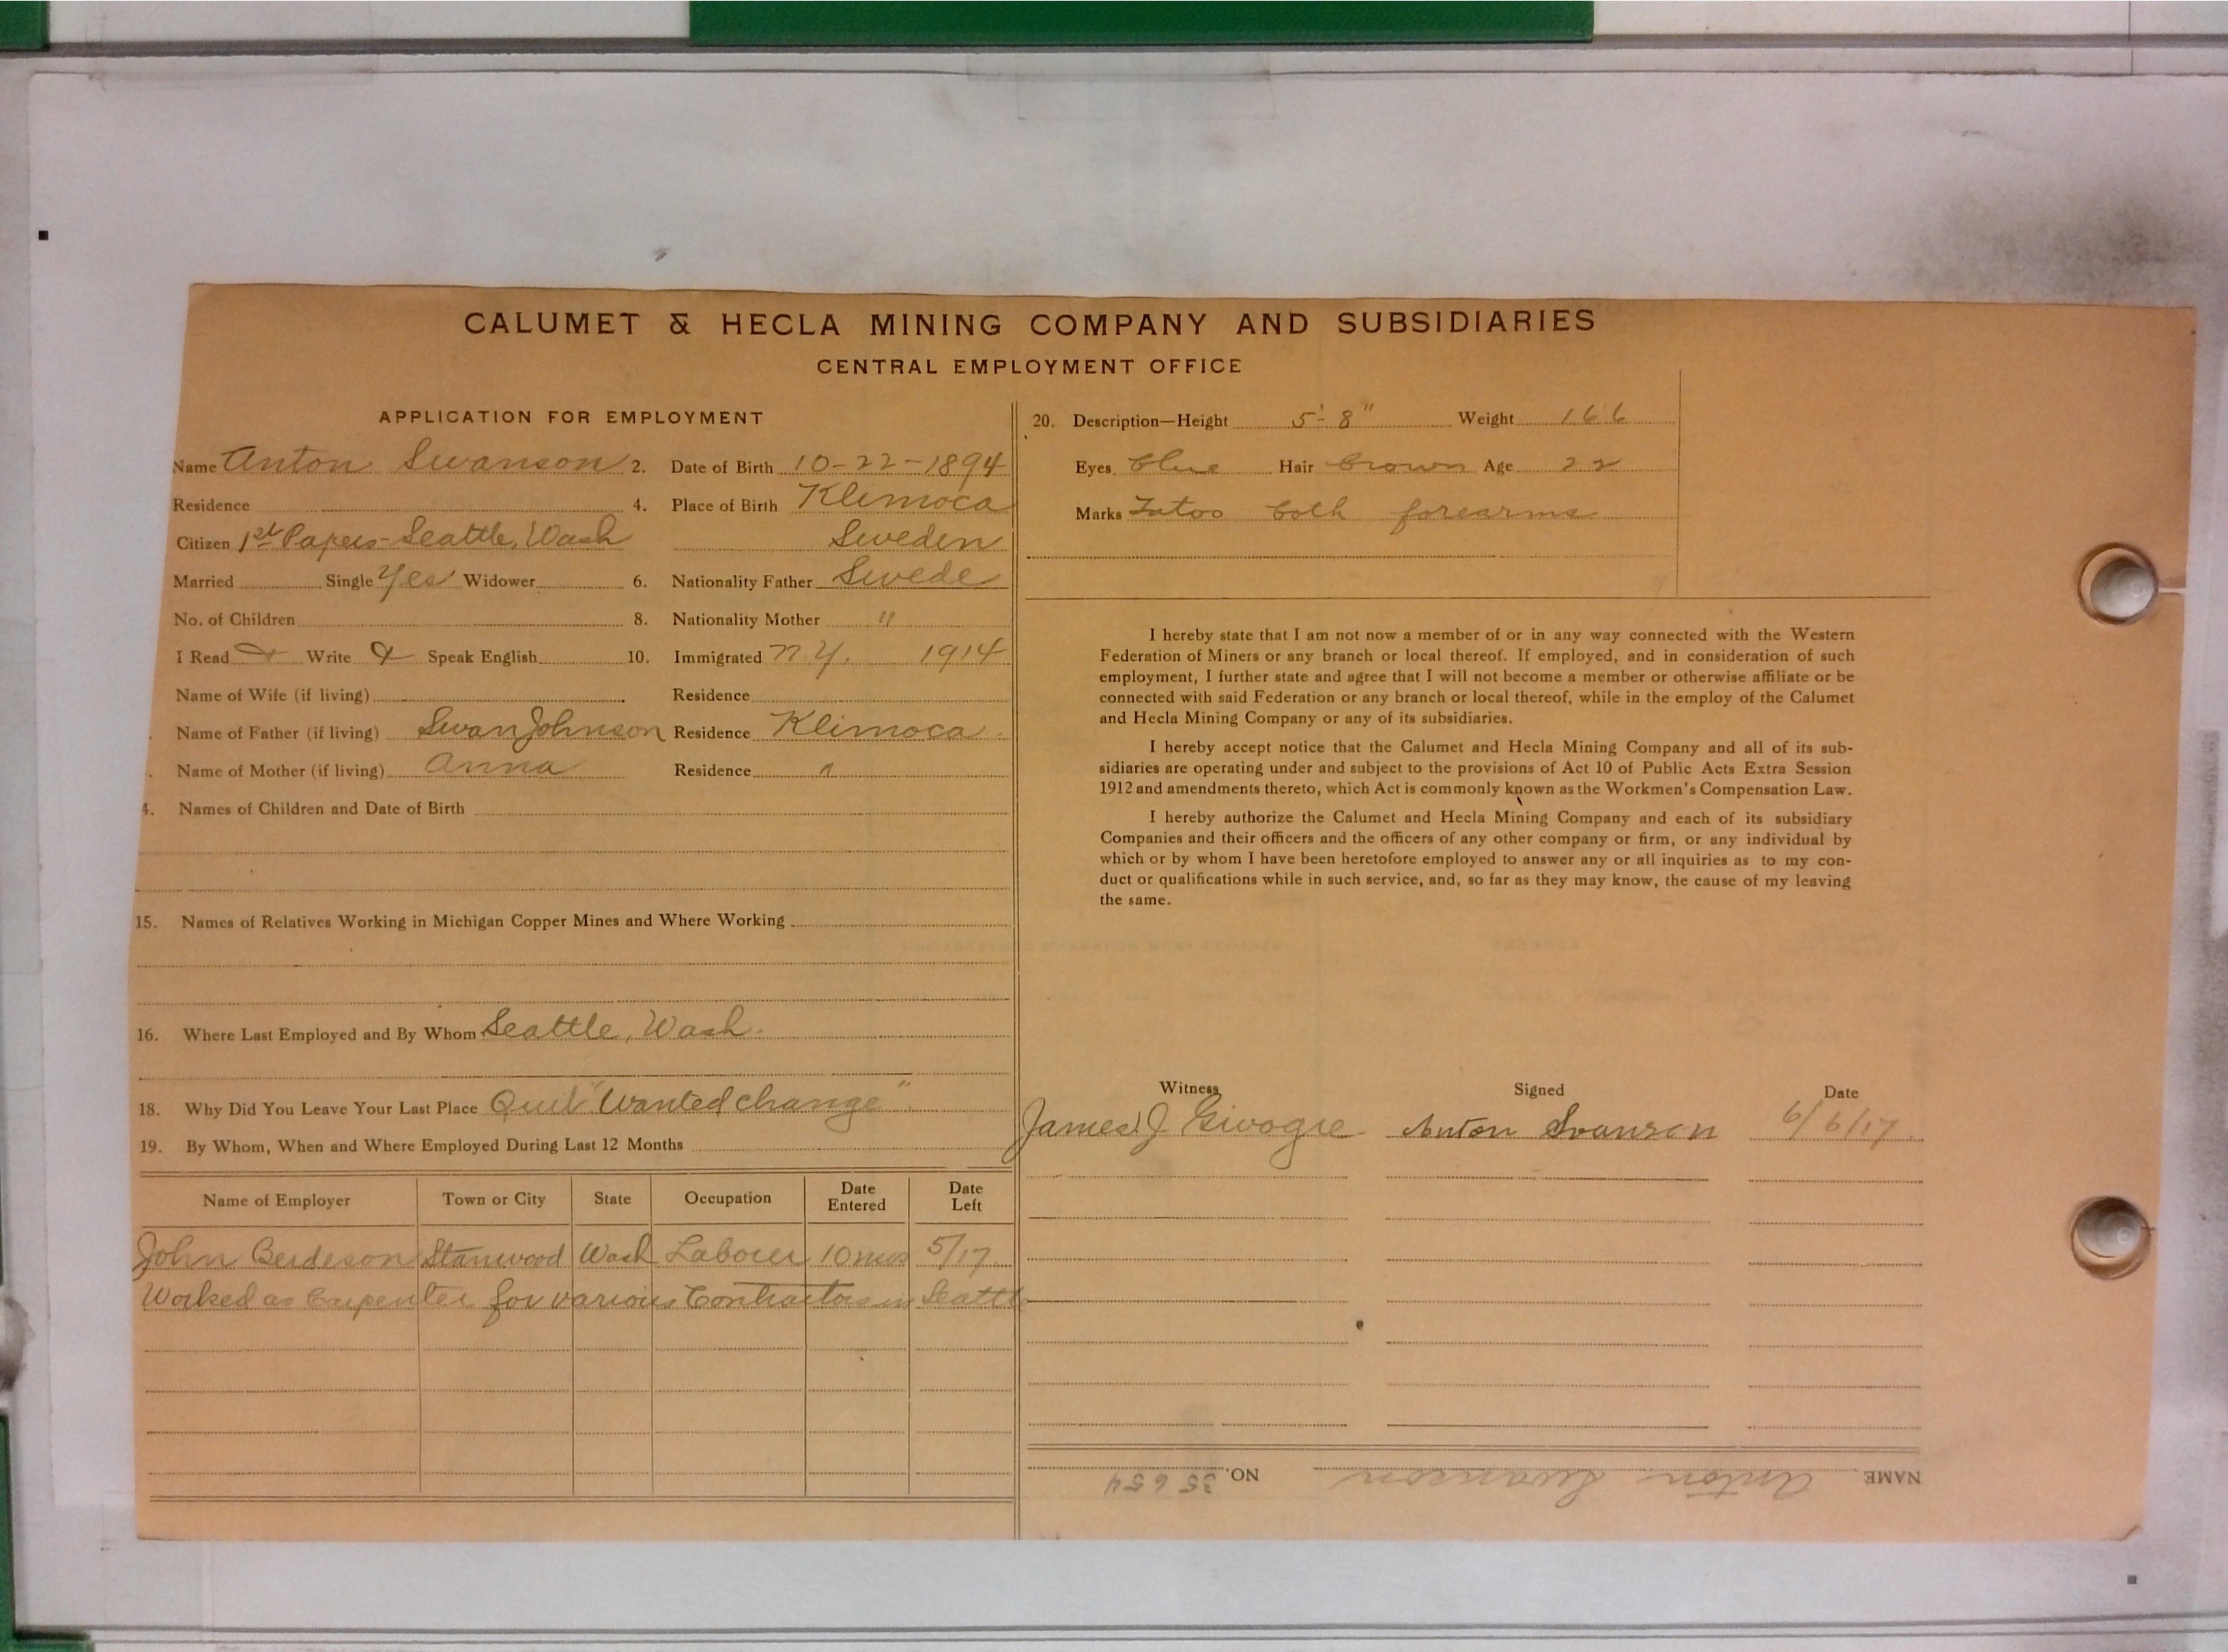 CALUMET & HECLA MINING COMPANY AND SUBSIDIARIES
CENTRAL EMPLOYMENT OFFICE
APPLICATION FOR EMPLOYMENT
Name Anton Swanson 2. Date of Birth 10-22-1894
Residence 4. Place of Birth Klimoca
Citizen 1st Papers - Seattle, Wash Sweden
Married Single Yes Widower 6. Nationality Father Swede
No. of Children 8. Nationality Mother "
I Read Write Speak English 10. Immigrated N.Y. 1914
Name of Wife (if living) Residence
Name of Father (if living) Swan Johnson Residence Klimoca
Name of Mother (if living) Anna Residence "
4. Names of Children and Date of Birth
15. Names of Relatives Working in Michigan Copper Mines and Where Working
16. Where Last Employed and By Whom Seattle, Wash.
18. Why Did You Leave Your Last Place Quit "Wanted change"
19. By Whom, When and Where Employed During Last 12 Months
Name of Employer Town or City State Occupation Date Entered Date Left
John Berdeson Stanwood Wash Laborer 10 mos 5/17
Worked as Carpenter for various Contractors in Seattle
20. Description—Height 5'-8" Weight 166
Eyes blue Hair brown Age 22
Marks Tatoo both forearms
I hereby state that I am not now a member of or in any way connected with the Western
Federation of Miners or any branch or local thereof. If employed, and in consideration of such
employment, I further state and agree that I will not become a member or otherwise affiliate or be
connected with said Federation or any branch or local thereof, while in the employ of the Calumet
and Hecla Mining Company or any of its subsidiaries.
I hereby accept notice that the Calumet and Hecla Mining Company and all of its sub-
sidiaries are operating under and subject to the provisions of Act 10 of Public Acts Extra Session
1912 and amendments thereto, which Act is commonly known as the Workmen's Compensation Law.
I hereby authorize the Calumet and Hecla Mining Company and each of its subsidiary
Companies and their officers and the officers of any other company or firm, or any individual by
which or by whom I have been heretofore employed to answer any or all inquiries as to my con-
duct or qualifications while in such service, and, so far as they may know, the cause of my leaving
the same.
Witness Signed Date
James J. Anton Swanson 6/6/17
NAME Anton Swanson NO. 35654